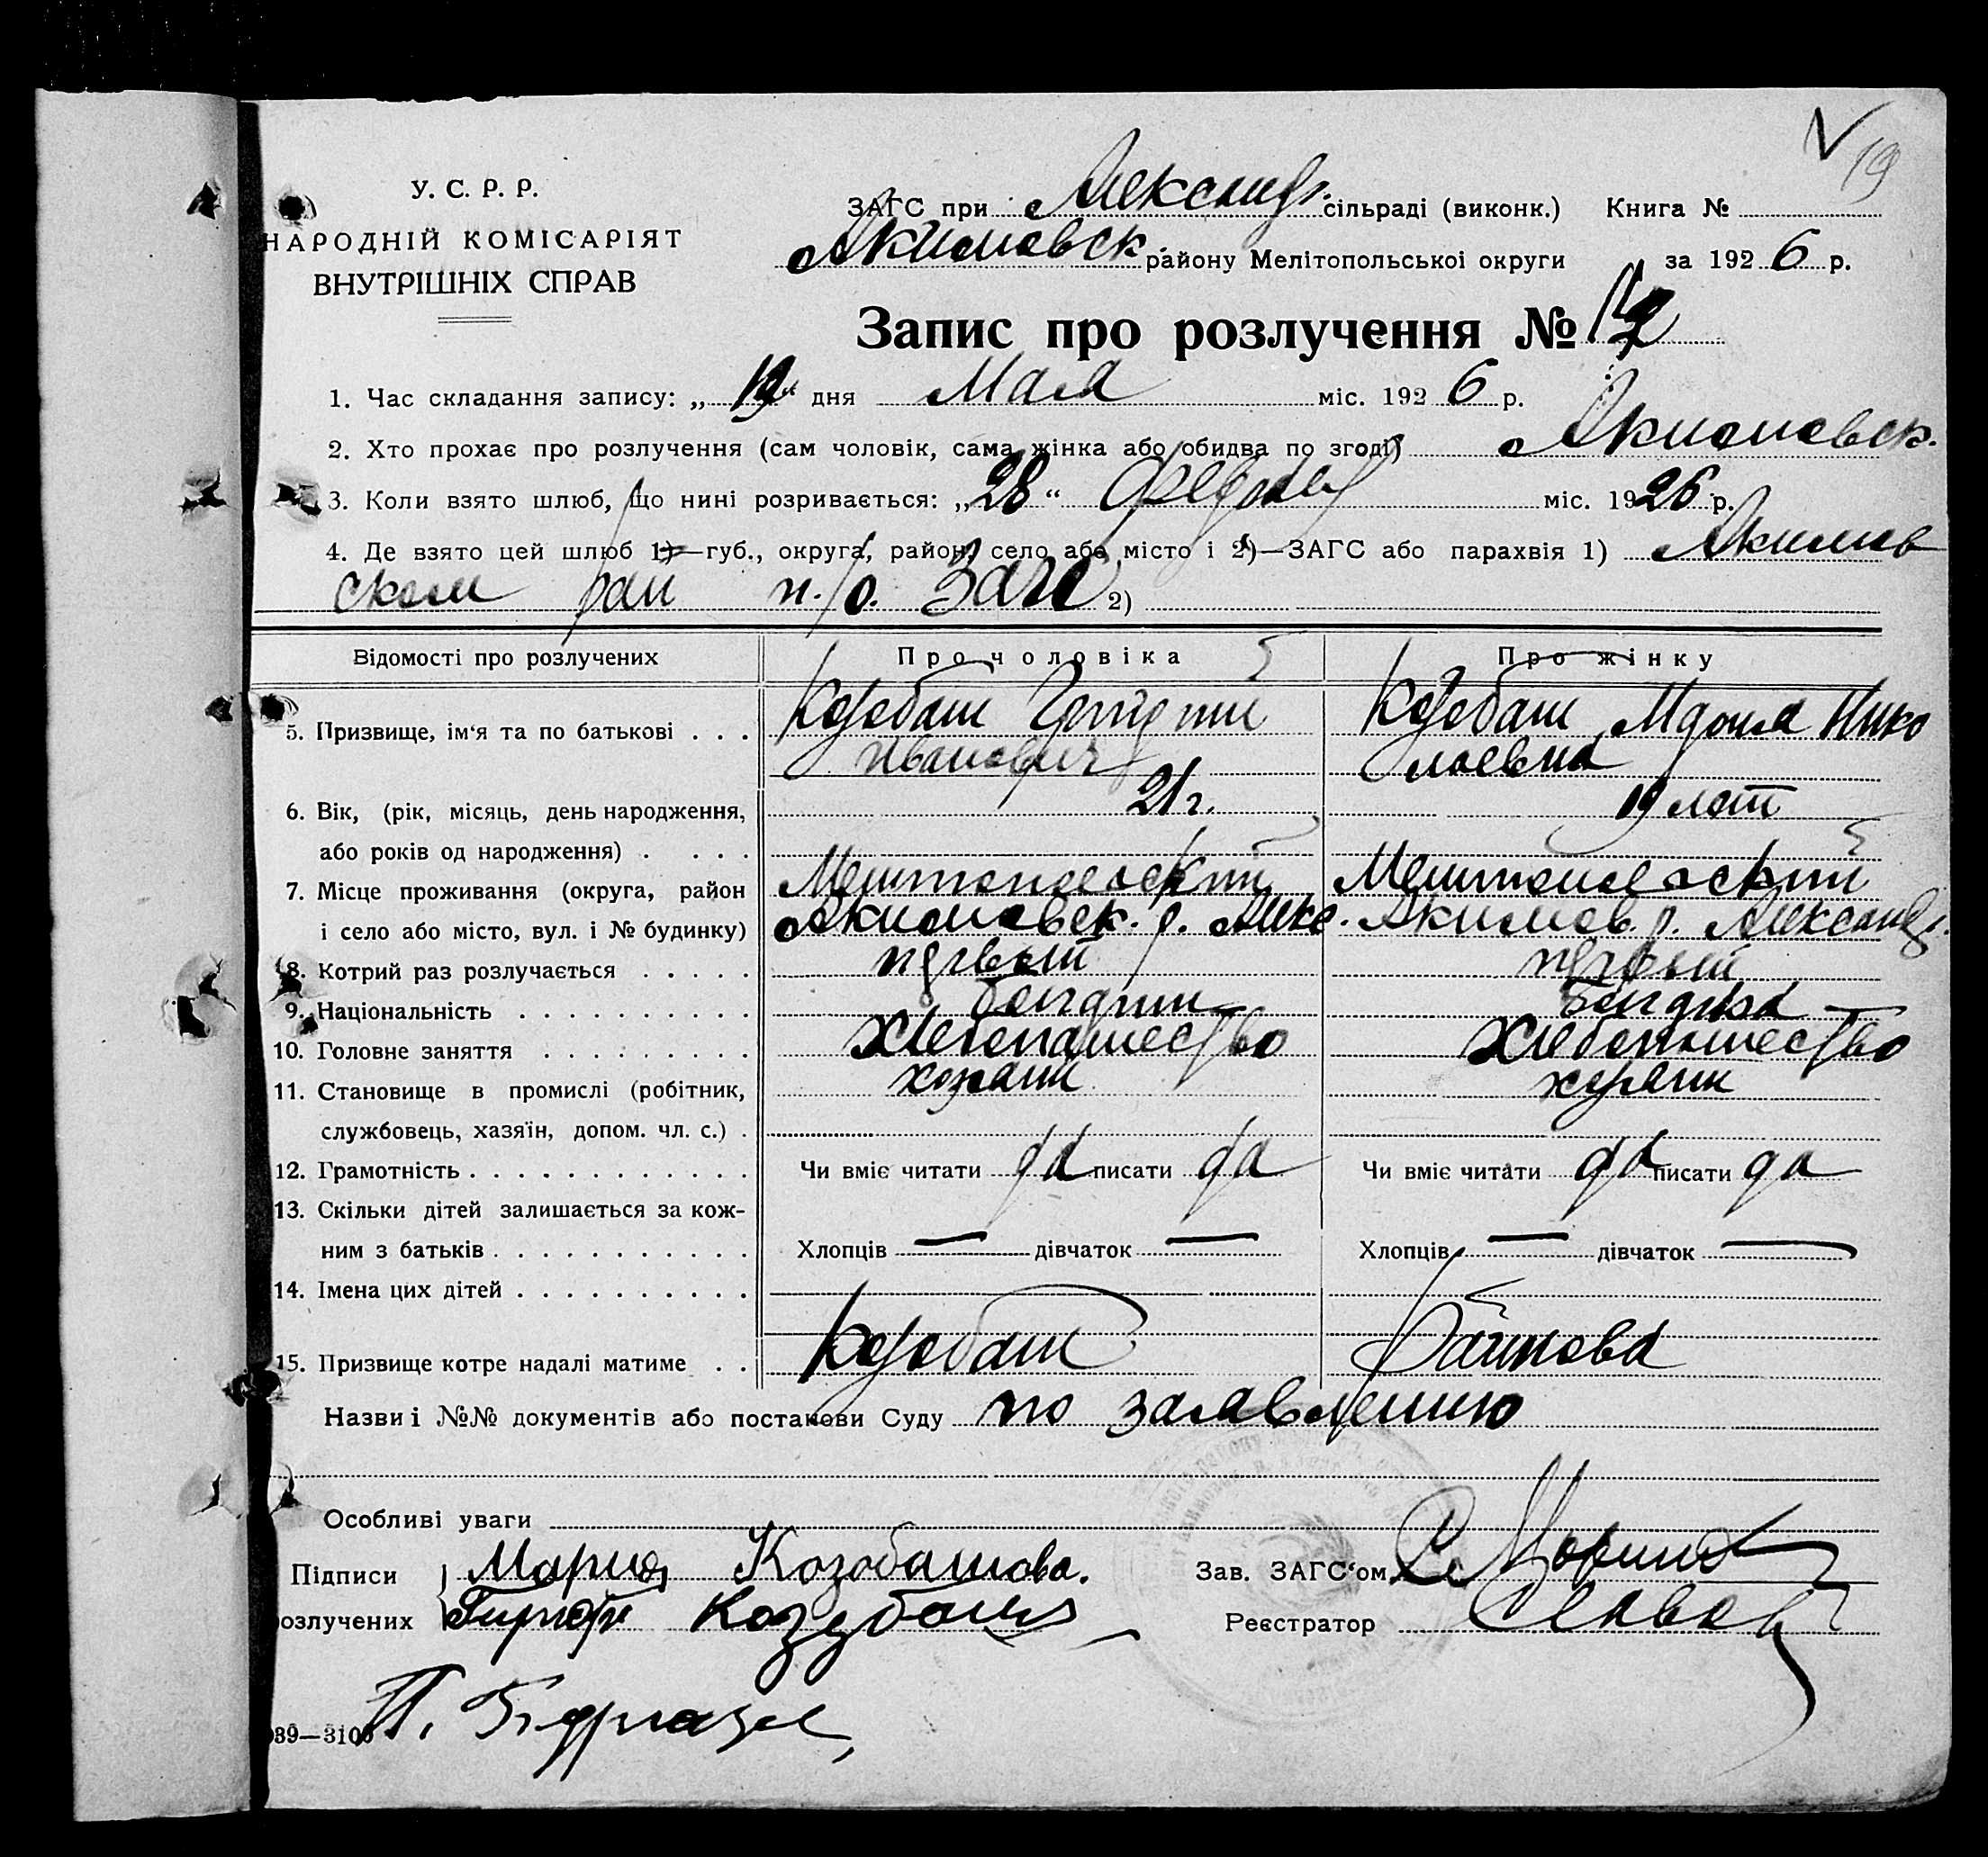 19
У. С. Р. Р.
НАРОДНІЙ КОМІСАРІЯТ
ВНУТРІШНІХ СПРАВ
ЗАГС при Александр. сільраді (виконк.) Книга №
Акимовск. району Мелітопольської округи за 1926 р.
Запис про розлучення №
1. Час складання запису: „19“ дня Мая міс. 1926 р.
2. Хто прохає про розлучення (сам чоловік, сама жінка або обидва по згоді) Акимовск.
3. Коли взято шлюб, що нині розривається: „28“ міс. 1926 р.
4. Де взято цей шлюб 1)—губ., округа, район, село або місто і 2)—ЗАГС або парахвія 1) Акимов
ском рай Загс 2)
Відомості про розлучених Про чоловіка Про жінку
5. Призвище, ім‘я та по батькові . . . Козобаш Козобаш Мария Нико
Иванович лаевна
6. Вік, (рік, місяць, день народження, 21 г. 19 лет
або років од народження) . . . .
7. Місце проживання (округа, район Мелитопольский Мелитопольский
і село або місто, вул. і № будинку) Акимовск. р. Алекс. Акимов. р. Александр.
8. Котрий раз розлучається . . . . . первый первый
9. Національність . . . . . . . . . . болгарин болгарка
10. Головне заняття . . . . . . . . . Хлебопашество Хлебопашество
11. Становище в промислі (робітник, хозяин хозяин
службовець, хазяїн, допом. чл. с.) .
12. Грамотність . . . . . . . . . . . . Чи вміє читати да писати да Чи вміє читати да писати да
13. Скільки дітей залишається за кож-
ним з батьків . . . . . . . . . . . Хлопців — дівчаток — Хлопців — дівчаток —
14. Імена цих дітей . . . . . . . . . .
15. Призвище котре надалі матиме . . Козобаш
Назви і №№ документів або постанови Суду по заявлению
Особливі уваги
Підписи Мария Козобашова. Зав. ЗАГС‘ом
озлучених Реєстратор
39—310